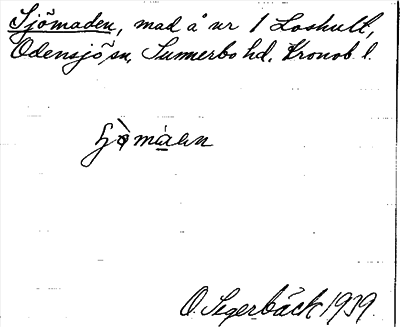 Sjömaden, mad å nr 1 Loshult,
Odensjö sn, Sunnerbo hd, Kronob. l.
O. Segerbäck 1939.